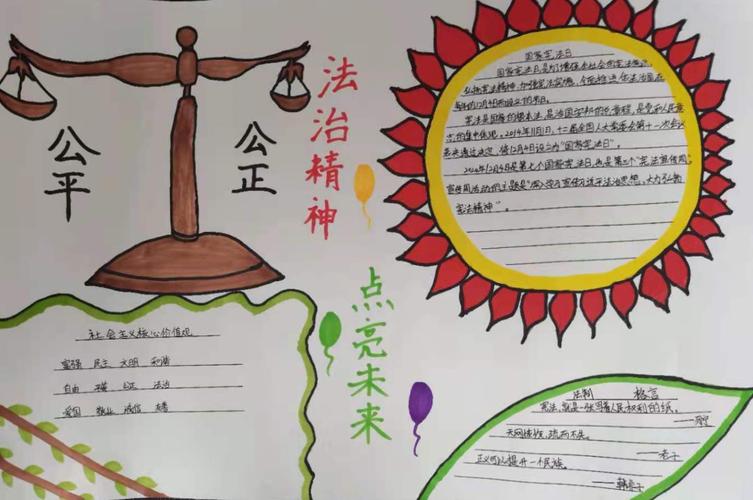 公平
公正
法治精神
点亮未来
国家宪法日
国家宪法日是为了增强全社会的宪法意识,
弘扬宪法精神,加强宪法实施,全面推进依法治国在
每年的12月4日而设立的节日。
宪法是国家的根本法,是治国安邦的总章程,是党和人民意
志的集中体现,2014年11月1日,十二届全国人大常委会第十一次会议
表决通过决定,将12月4日设立为"国家宪法日"。
2020年12月4日是第七个国家宪法日,也是第三个"宪法宣传周"
宣传周活动的主题是"深入学习宣传习近平法治思想,大力弘扬
宪法精神"。
社会主义核心价值观
富强 民主 文明 和谐
自由 平等 公正 法治
爱国 敬业 诚信 友善
法制 格言
宪法,就是一张写着人民权利的纸。
——列宁
天网恢恢,疏而不失。
——老子
正义可以提升一个民族。